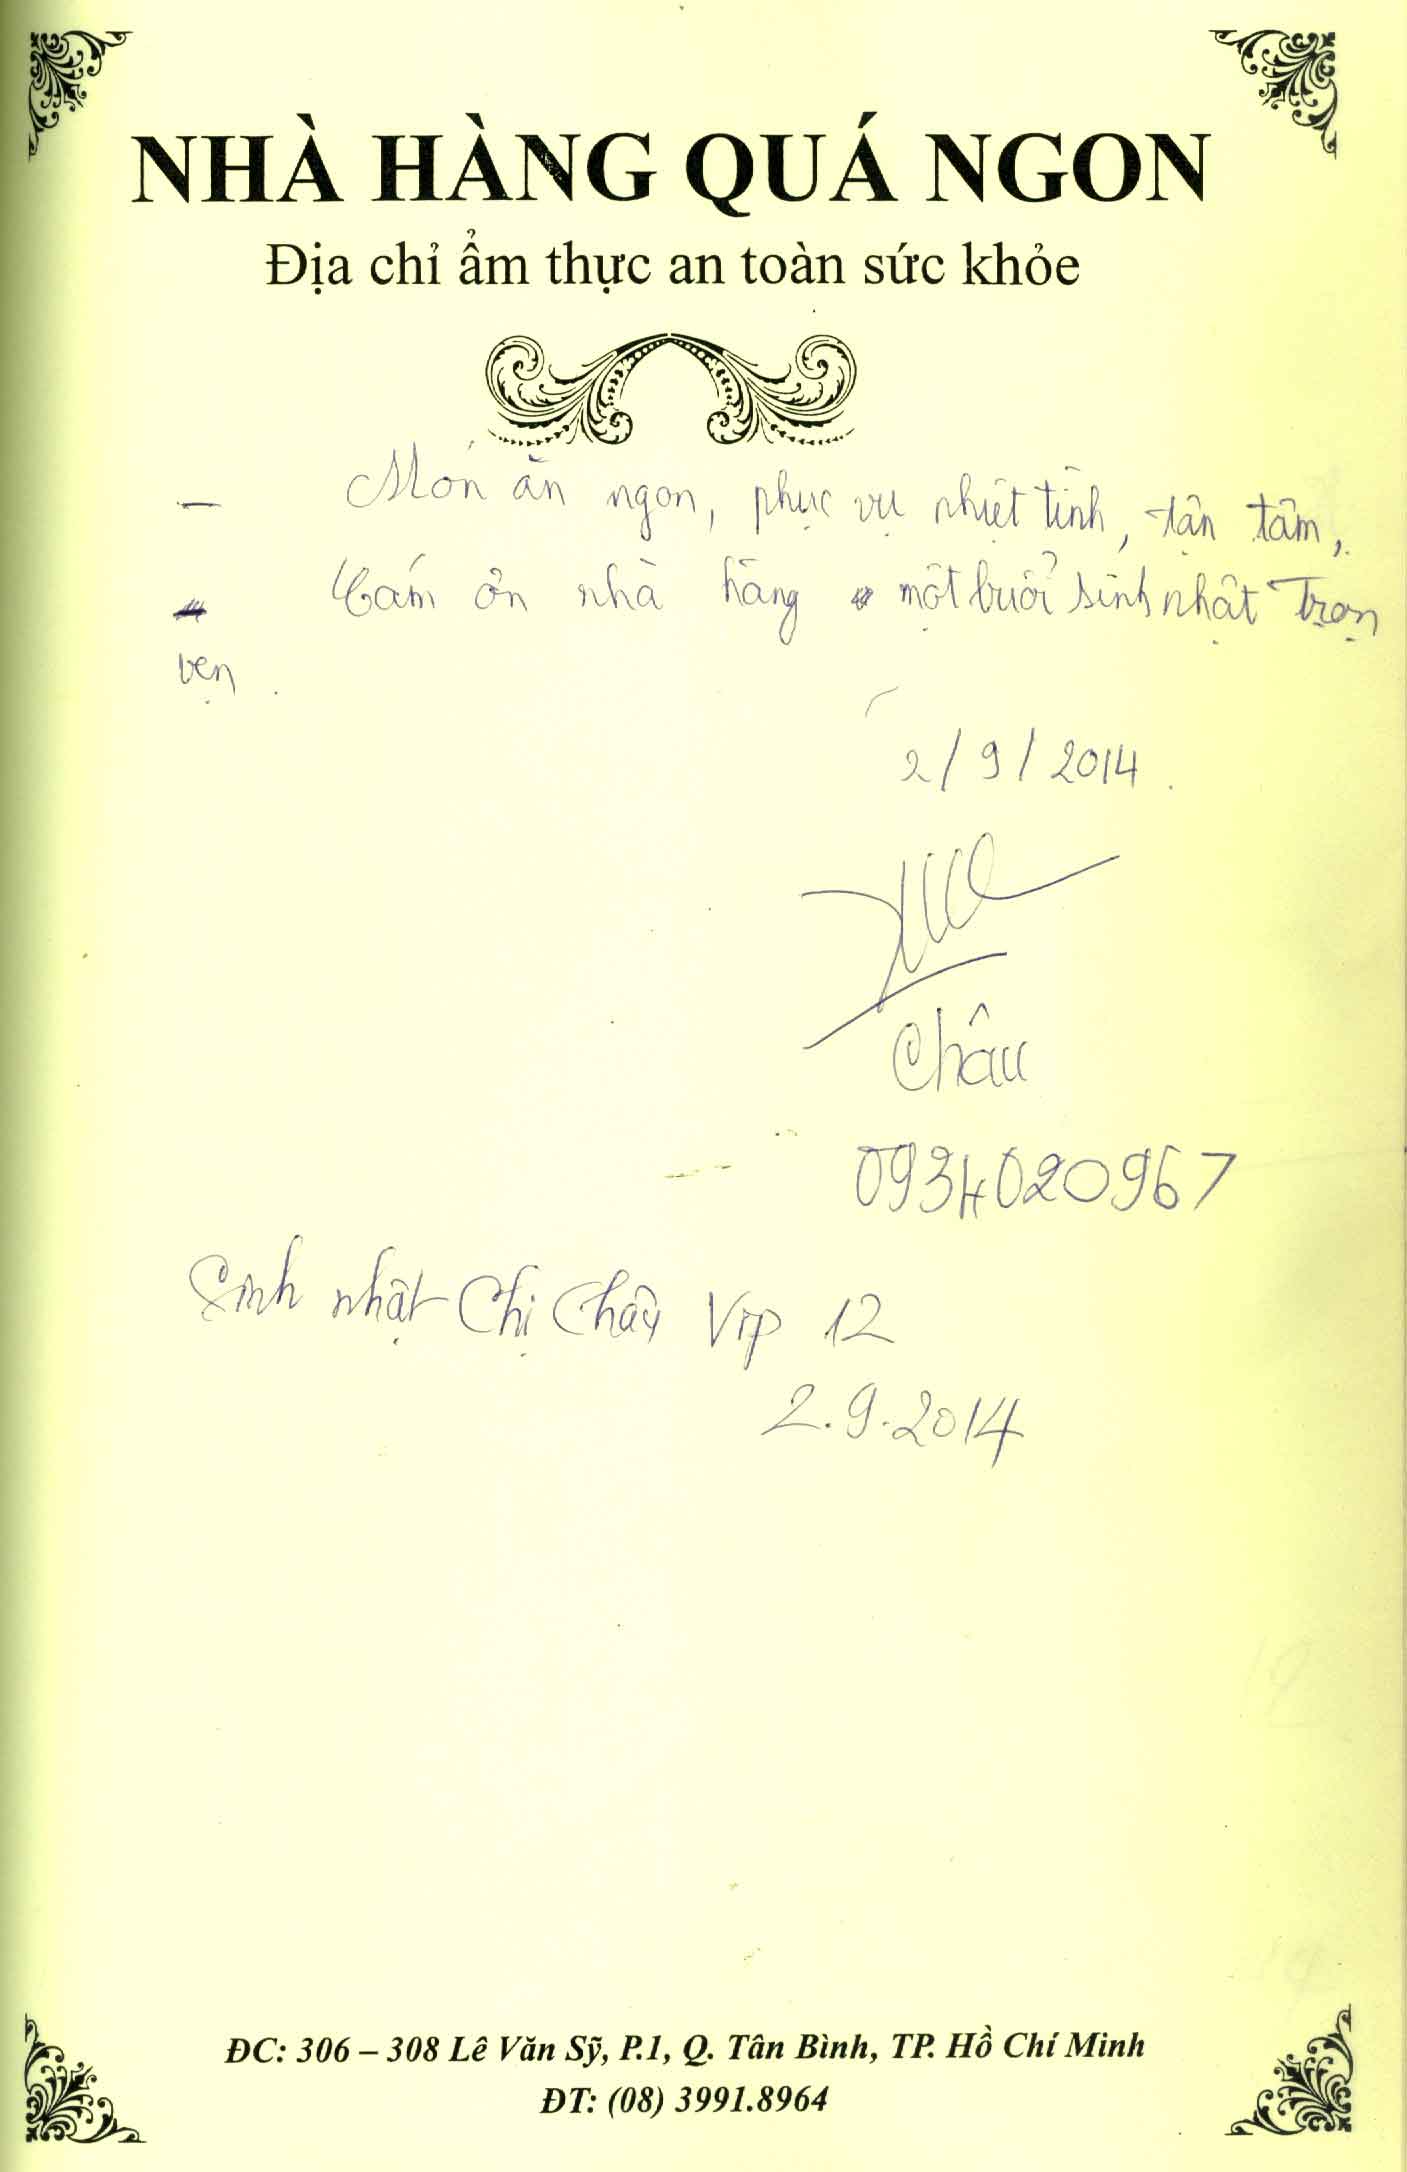 NHÀ HÀNG QUÁ NGON
Địa chỉ ẩm thực an toàn sức khỏe
- Món ăn ngon, phục vụ nhiệt tình, tận tâm,
Cám ơn nhà hàng một buổi sinh nhật Trọn
vẹn.
2/9/2014.
Châu
0934020967
Sinh nhật Chị Châu Vip 12
2.9.2014
ĐC: 306 – 308 Lê Văn Sỹ, P.1, Q. Tân Bình, TP. Hồ Chí Minh
ĐT: (08) 3991.8964